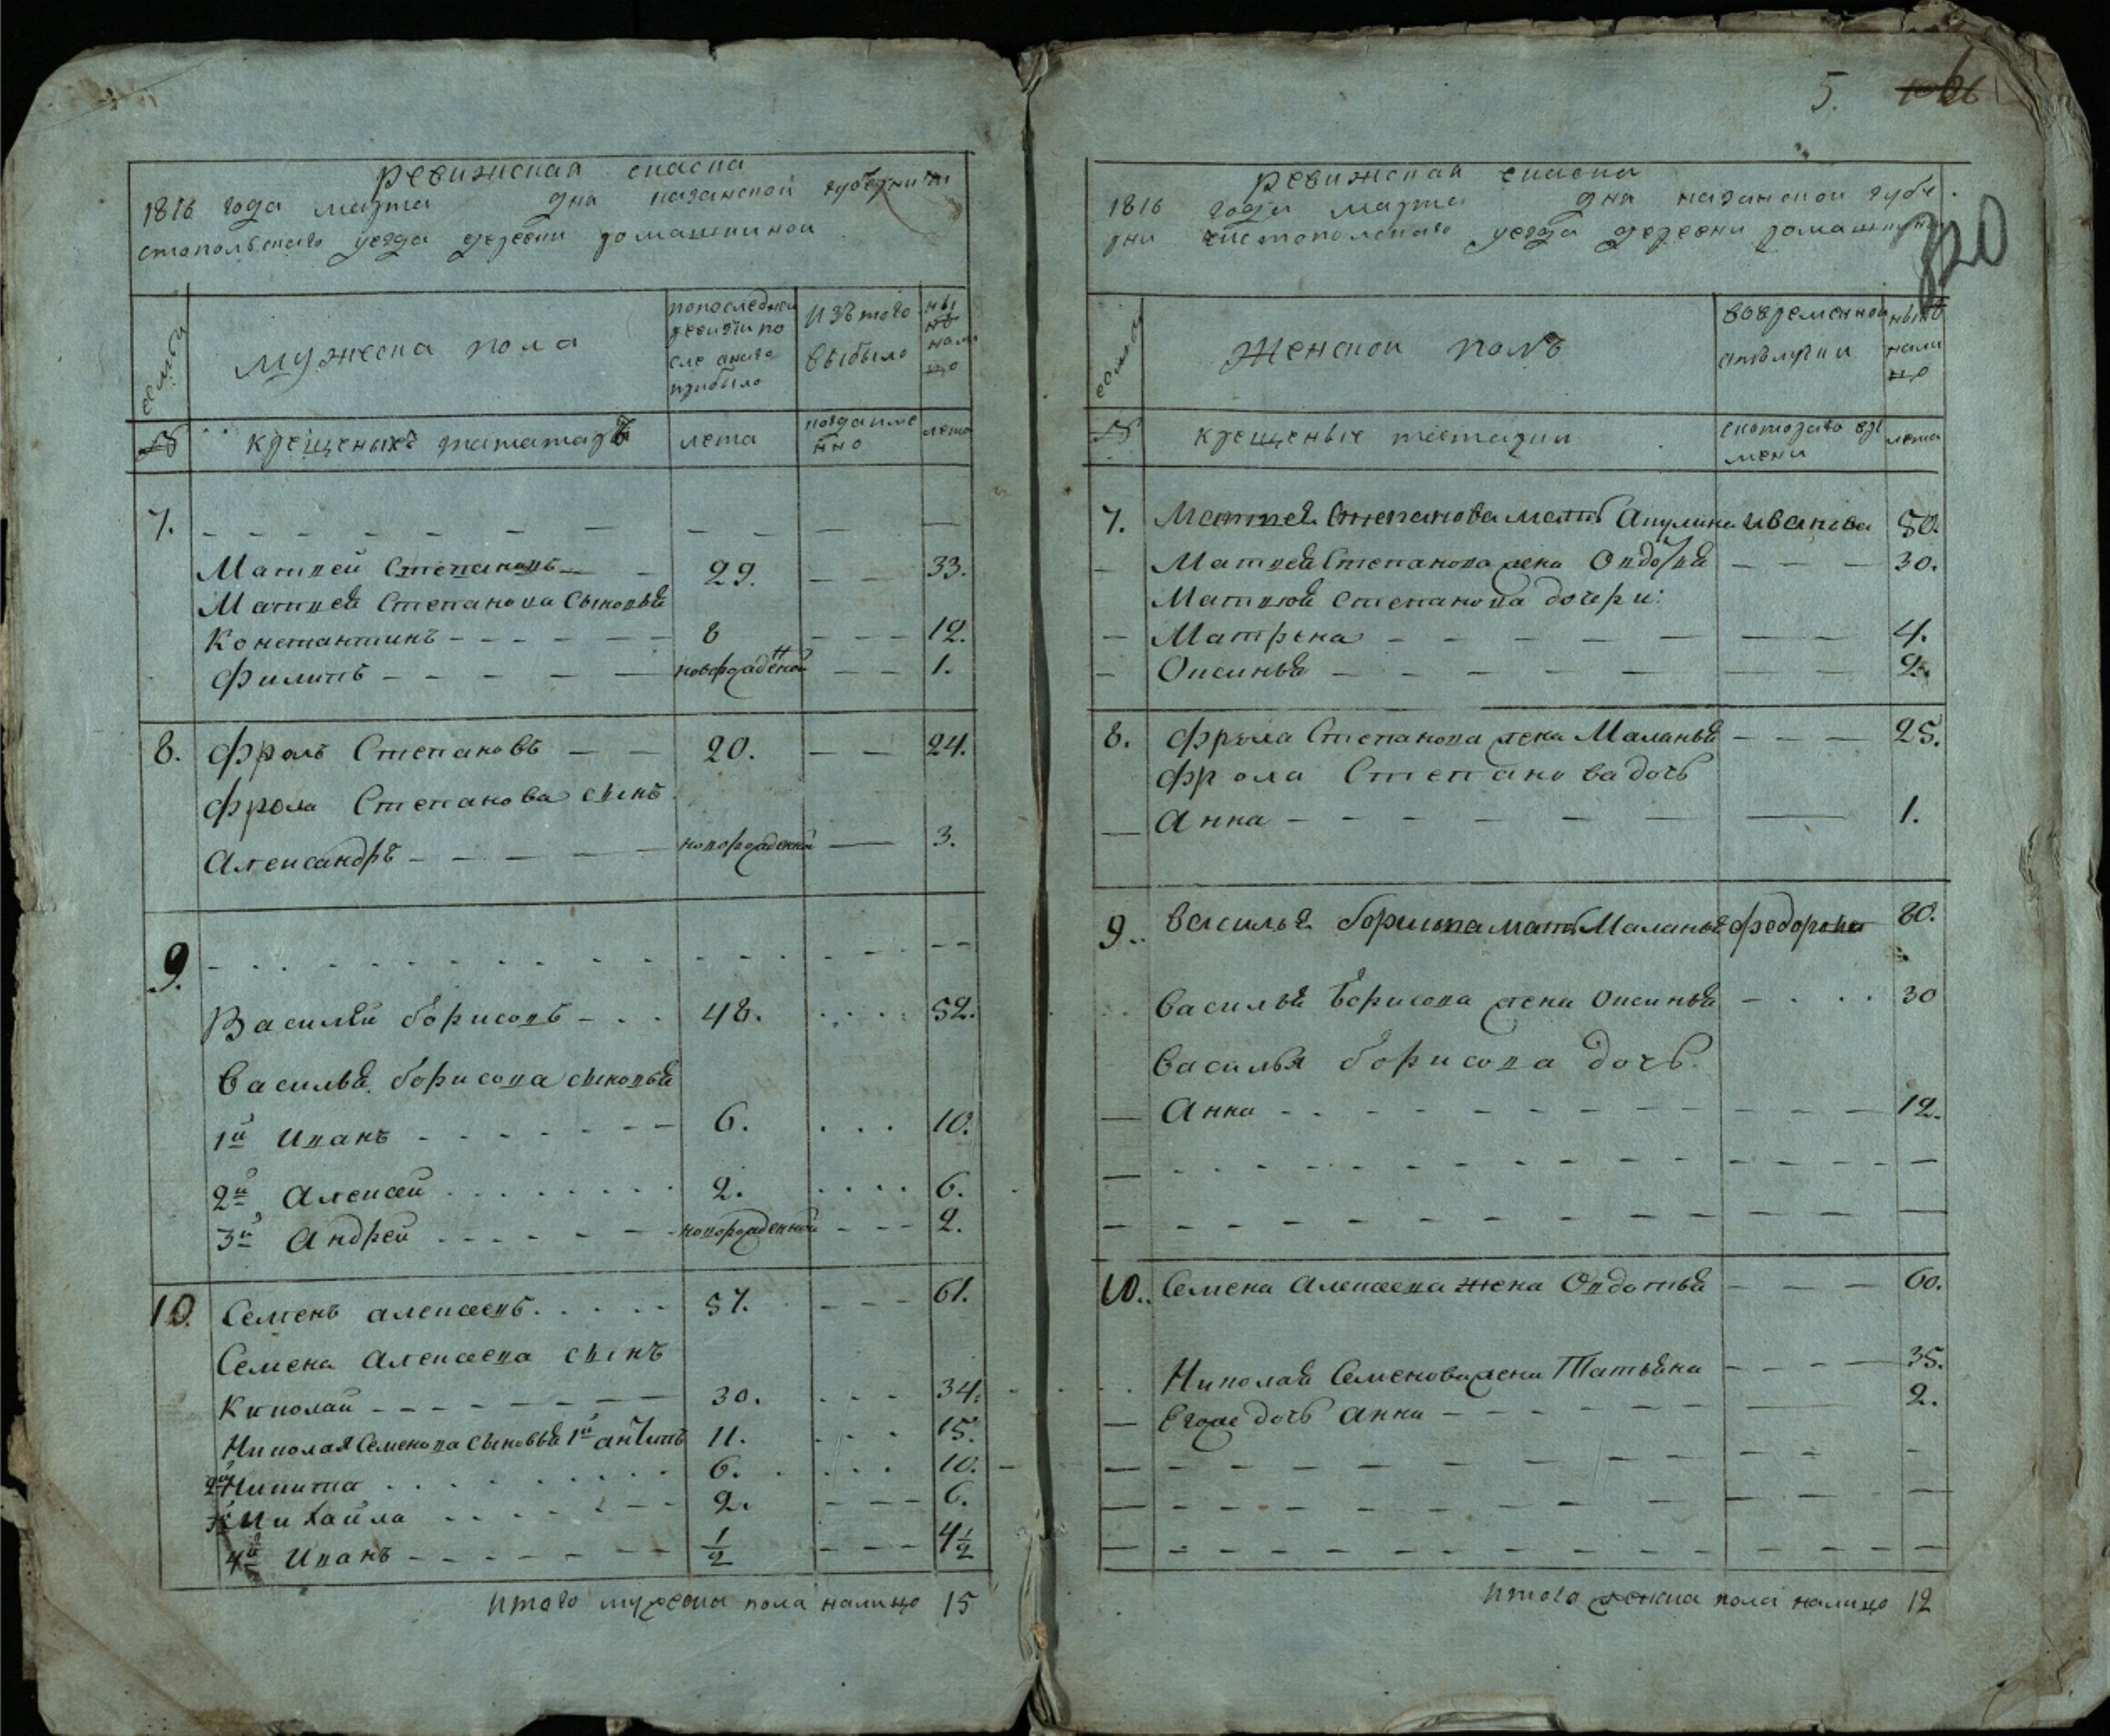 ревижская скаска
1816 года марта дня казанской губернии
стопольскаго уезда деревни ромашкиной
семьи
мужеска пола
попоследней ревизги по сле оного прибыло
изъ того выбыло
ны не нали цо
№
крещеныхъ татаръ
лета
когда име нно
лета
7.
Матвей Степановъ 29. 33.
Матвея Степанова сыновья
Константинъ 8 12.
Филипъ новорожденной 1.
8. Фролъ Степановъ 20. 24.
Фрола Степанова сынъ
Александръ новорожденной 3.
9.
Василей борисовъ 48. 52.
Василья борисова сыновья
1й Иванъ 6. 10.
2й Алексей 2. 6.
3й Андрей новорожденной 2.
10. Семенъ алексеевъ 57. 61.
Семена Алексеева сынъ
Николай 30. 34.
Николая Семенова сыновья 1й антипъ 11. 15.
2й Никита 6. 10.
3й Михайла 2. 6.
4й Иванъ 1/2 4 1/2
итого мужеска пола налицо 15
5.
320
ревижская скаска
1816 года марта дня казанской губе
рни чистопольскаго уезда деревни ромашкиной
семьи
Женской полъ
вовременной отлучки
ныне нали цо
№
крещеные татарки
скоторого вре мени
лета
7. Матвея Степанова мать Акулина Иванова 50.
Матвея Степанова жена Овдотья 30.
Матвея степанова дочери:
Матрена 4.
Оксинья 2.
8. Фрола Степанова жена Маланья 25.
Фрола Степанова дочь
Анна 1.
9. Василья борисова мать Маланья федорова 80.
Василья Борисова жена Оксинья 30
Василья борисова дочь
Анна 12.
10. Семена Алексеева жена Овдотья 60.
Николая Семенова жена Татьяна 35.
Егоже дочь анна 2.
итого женска пола налицо 12